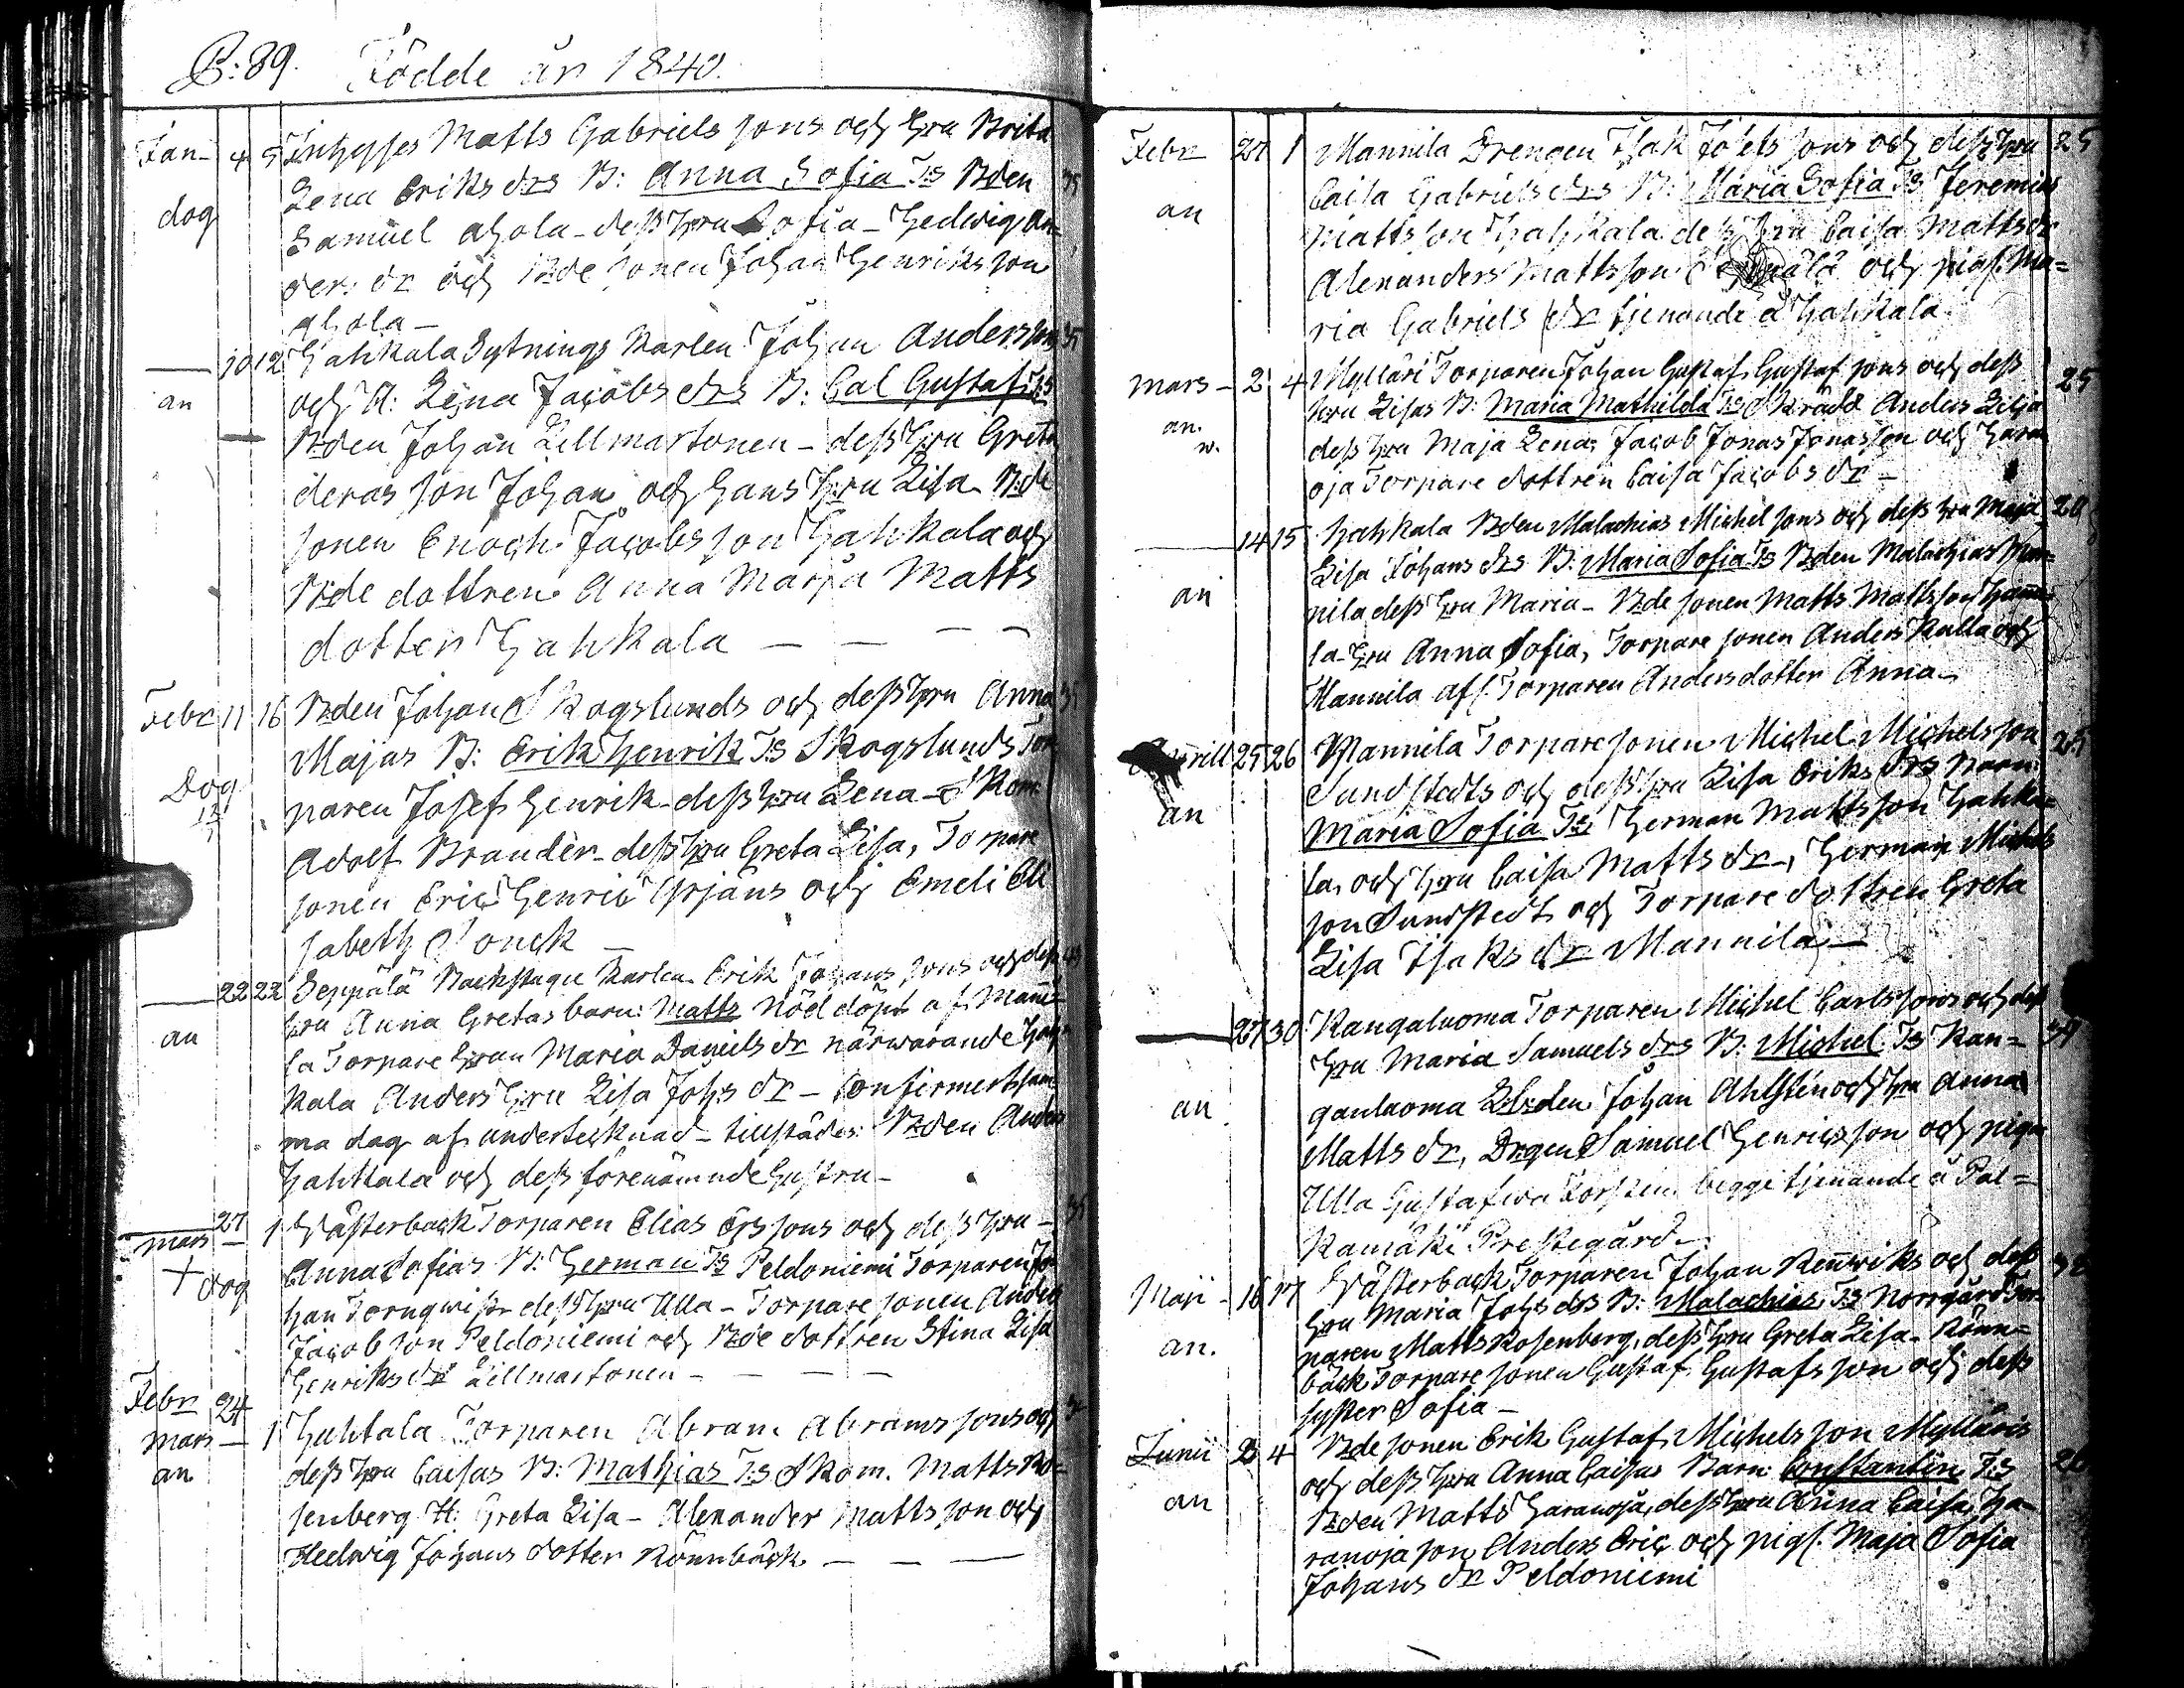 B: 89. Födde år 1840.
Jan- 4 5 Inhyses Matts Gabriels sons och Hru Brita
Lena Eriks drs B: Anna Sofia Ts Bden 35
dog Samuel Ahola - dess Hru Sofia - Hedwig An=
ders dr och Bde sonen Johan Henriksson
Ahola -
— 10 12 Hahkala Sytnings Karlen Johan Anderssons 35
an och H: Lena Jacobs drs B: Cal Gustaf Ts
Bden Johan Lillmartonen - dess Hru Greta
deras son Johan och hans Hru Lisa. Bde
sonen Enoch Jacobsson Hahkala och
Bde dottren Anna Marja Matts
dotter Hahkala — — — —
Febr 11 16 Bden Johan Skogslunds och dess Hru Anna 35
Majas B: Erik Henrik Ts Skogslunds Tor
Dog
paren Josef Henrik - dess Hru Lena - Skom.
Adolf Brander - dess Hru Greta Lisa, Torpare
sonen Eric Henric Örjans och Emeli Eli
sabeth Sonck —
— 22 22 Seppälä Backstugu Karlen Erik Johans sons och dess
an Hru Anna Gretas barn: Matts Nöd döpt af Manni
la Torpare Hrun Maria Daniels dr närwarande Hah
kala Anders Hru Lisa Johs dr - Confirmerts sam
ma dag af undertecknad - tillstädes: Bden Anders
Hahkala och dess förenämnde Hustru -
27
Mars — 1 Wästerback Torparen Elias Erssons och dess Hru - 35
+ dog Anna Sofias B: Herman Ts Peldoniemi Torparen Jo
han Tornqwist dess Hru Ulla - Torpare sonen Anders
Jacobsson Peldoniemi och Bde dottren Stina Lisa
Henriks dr Lillmartonen — — — —
Febr 24
Mars — 1 Huhtala Torparen Abram Abramssons och
an dess Hru Caisas B: Mathias Ts Skom. Matts Ro=
senberg H: Greta Lisa - Alexander Mattsson och
Hedwig Johans dotter Rönnbäck — — —
Febr 27 1 Mannila Drengen Isak Joëls sons och dess Hru 25
Caisa Gabriels drs B: Maria Sofia Ts Jeremias
an Mattsson Hahkala dess Hru Caisa Matts dr
Alexanders Mattsson och pigs. Ma=
ria Gabriels dr tjenande å Hahkala.
Mars - 2 4 Mylläri Torparen Johan Gustaf Gustafsons och dess 25
Hru Lisas B: Maria Mathilda Ts Skrädd. Anders Lilja
an. dess Hru Maja Lena, Jacob Jonas Jonasson och Hara
oja Torpare dottren Caisa Jacobs dr -
— 14 15 Hahkala Bden Malachias Michelsons och dess Hru Maja
Lisa Johans drs B: Maria Sofia Ts Bden Malachias Man=
an nila dess Hru Maria - Bde sonen Matts Mattsson
la - Hru Anna Sofia, Torpare sonen Anders Kalla och
Mannila afl. Torparen Anders dotter Anna -
rill 25 26 Mannila Torpare sonen Michel Michelsson 25
Sundstedts och dess Hru Lisa Eriks drs Barn:
an Maria Sofia Ts Herman Mattsson Hahka=
la, och Hru Caisa Matts dr -, Herman Michels
son Sundstedt och Torpare dottren Greta
Lisa Isaks dr Mannila —
— 27 30 Kangaluoma Torparen Michel Carlssons och dess
Hru Maria Samuels drs B: Michel Ts Kan=
an galuoma Lbden Johan Ahlsten och Hru Anna
Matts dr, Drgen Samuel Henricsson och pigan
Ulla Gustafwa begge tjenande å Pal=
kamäki Prestegård -
Maji - 16 17 Wästerback Torparen Johan Renwiks och dess
Hru Maria Johs drs B: Malachias Ts Norrgård Tor
an. paren Matts Rosenberg, dess Hru Greta Lisa - Rönn=
bäck Torpare sonen Gustaf Gustafsson och dess
syster Sofia -
Junii 2 4 Bde sonen Erik Gustaf Michelsson Mylläris
och dess Hru Anna Caisas Barn: Constantin Ts
an Bden Matts Haranoja, dess Hru Anna Caisa, Ha
ranoja son Anders Eric och pigs. Maja Sofia
Johans dr Peldoniemi